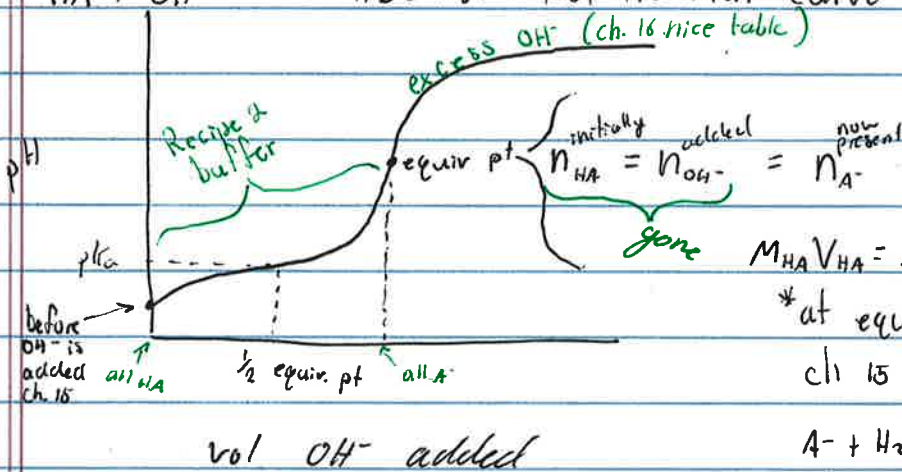 excess OH⁻ (ch. 16 nice table)
Recipe 2
buffer
pH
equiv pt
initially added now present
n_HA = n_OH⁻ = n_A⁻
gone
pKa
M_HA V_HA =
*at equ
before
OH⁻ is
added
ch. 15
all HA
1/2 equiv. pt
all A⁻
ch 15
vol OH⁻ added
A⁻ + H₂